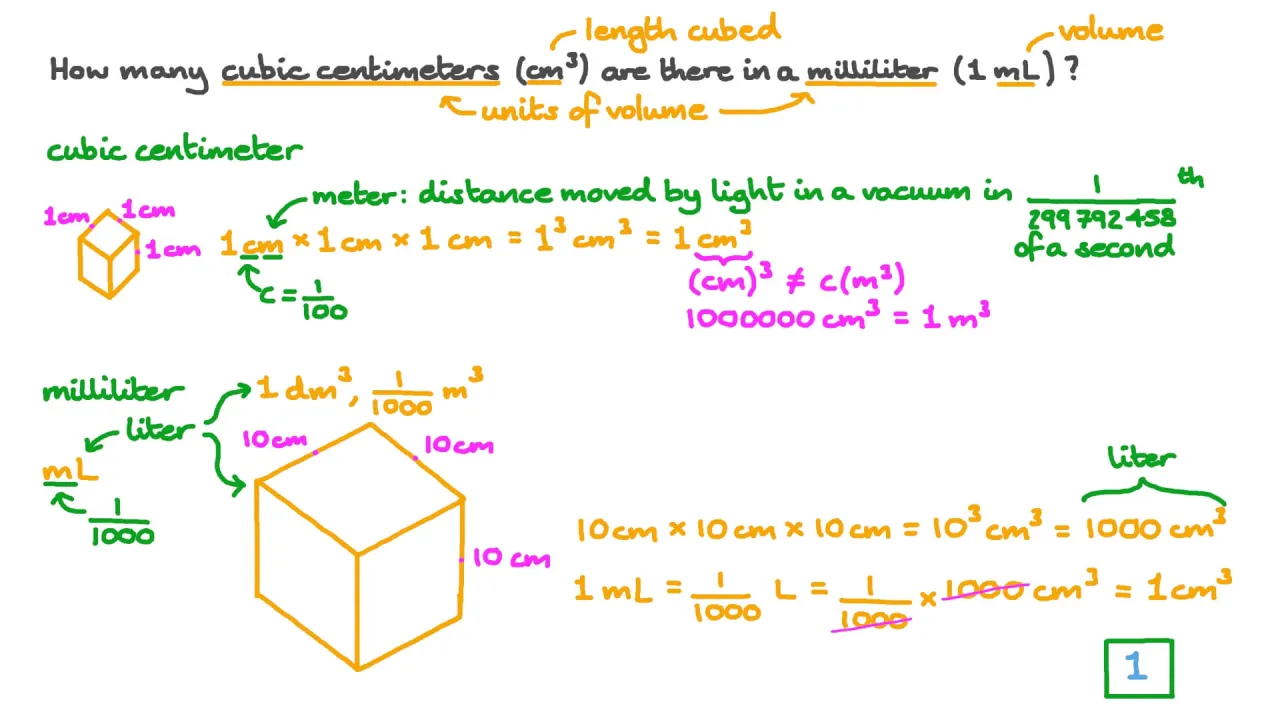 length cubed
volume
How many cubic centimeters (cm³) are there in a milliliter (1 mL)?
units of volume
cubic centimeter
meter: distance moved by light in a vacuum in 1/299 792 458 th of a second
1cm 1cm
1cm
1cm × 1cm × 1cm = 1³ cm³ = 1 cm³
c = 1/100
(cm)³ ≠ c(m³)
1000000 cm³ = 1 m³
milliliter
1 dm³, 1/1000 m³
liter
mL
1/1000
10cm
10cm
10 cm
liter
10cm × 10cm × 10cm = 10³ cm³ = 1000 cm³
1 mL = 1/1000 L = 1/1000 × 1000 cm³ = 1cm³
1